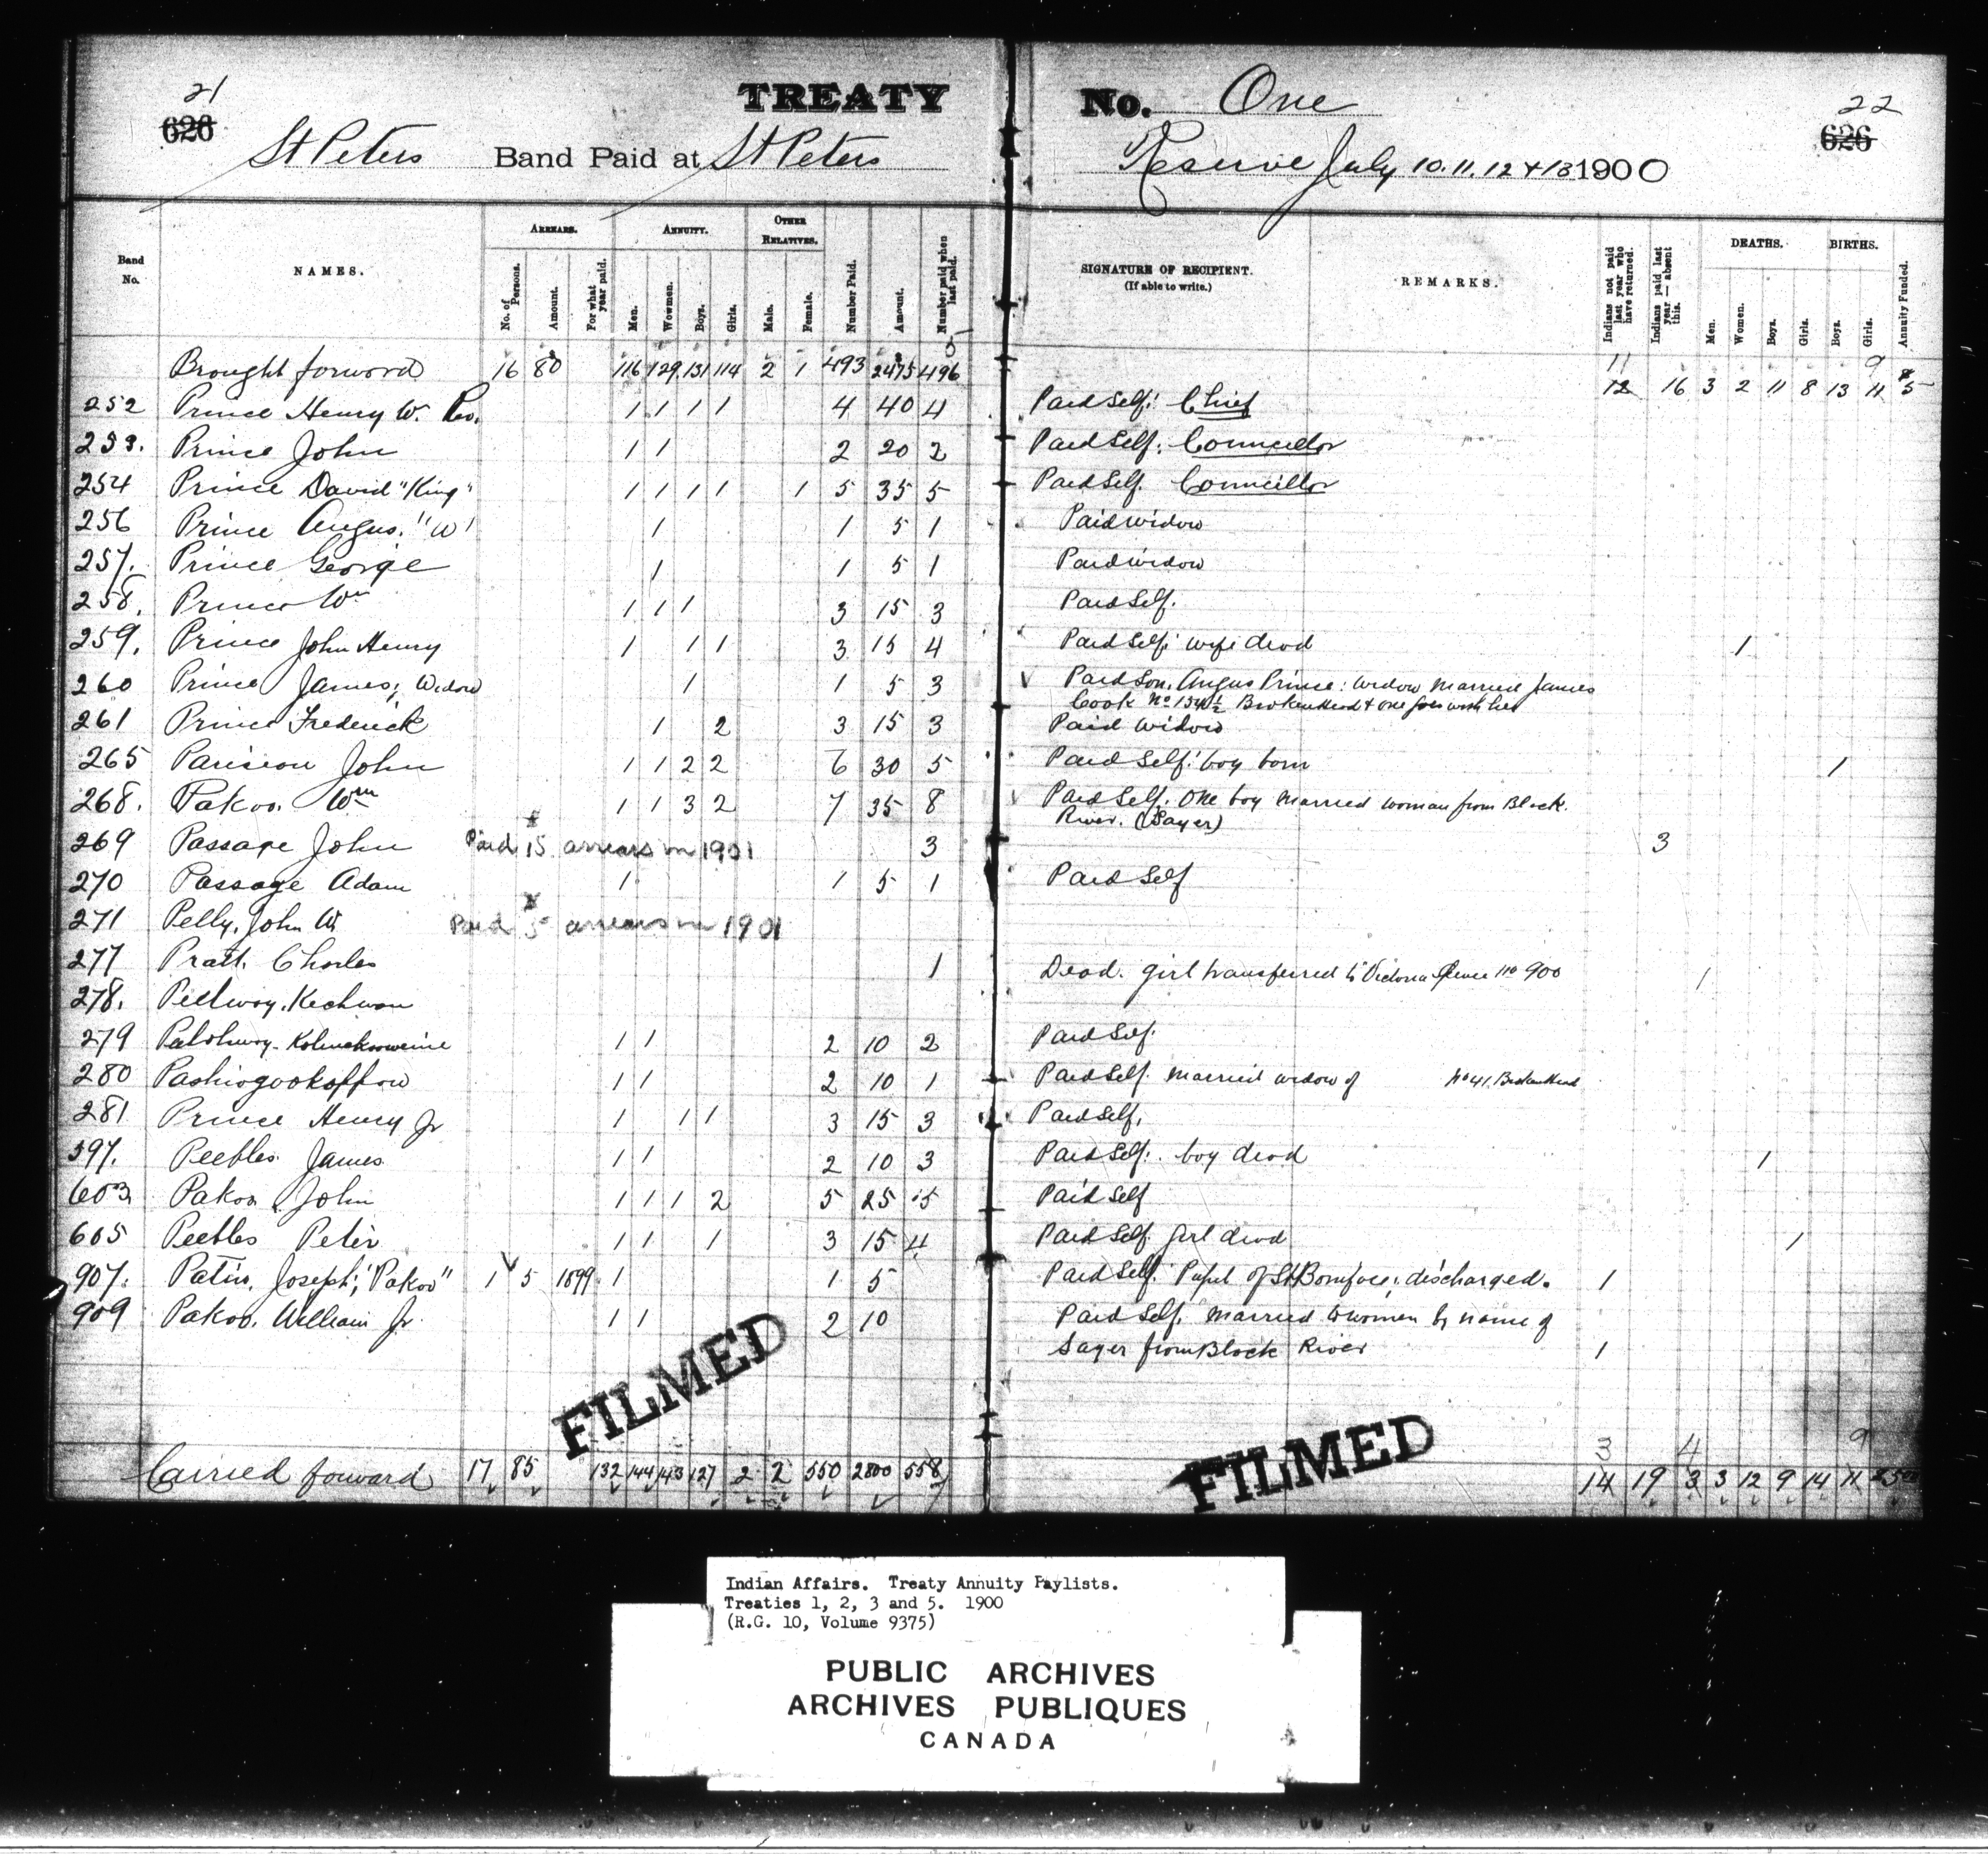 21
626
TREATY No. One
22
626
St Peters Band Paid at St Peters Reserve July 10. 11. 12 & 13 1900
Band No.
NAMES.
ARREARS.
No. of Persons.
Amount.
For what year paid.
ANNUITY.
Men.
Wowmen.
Boys.
Girls.
OTHER RELATIVES.
Male.
Female.
Number Paid.
Amount.
Number paid when last paid.
SIGNATURE OF RECIPIENT.
(If able to write.)
REMARKS.
Indians not paid last year who have returned.
Indians paid last year — absent this.
DEATHS.
Men.
Women.
Boys.
Girls.
BIRTHS.
Boys.
Girls.
Annuity Funded.
5
11 9
Brought forword 16 80 116 129 131 114 2 1 493 2475 496 12 16 3 2 11 8 13 11 5
252 Prince Henry W. Rev. 1 1 1 1 4 40 4 Paid Self: Chief
253. Prince John 1 1 2 20 2 Paid Self: Councillor
254 Prince David "King" 1 1 1 1 1 5 35 5 Paid Self. Councillor
256 Prince Angus. "W" 1 1 5 1 Paid widow
257. Prince George 1 1 5 1 Paid widow
258. Prince Wm 1 1 1 3 15 3 Paid Self.
259. Prince John Henry 1 1 1 3 15 4 Paid Self; wife dead 1
260 Prince James; Widow 1 1 5 3 Paid Son, Angus Prince: widow married James
Cook No 134½ BrokenHead & one goes with her
261 Prince Frederick 1 2 3 15 3 Paid widow
265 Parision John 1 1 2 2 6 30 5 Paid Self: boy born 1
268. Pakoo. Wm 1 1 3 2 7 35 8 Paid Self. One boy married woman from Black
River. (Sayer)
269 Passage John Paid $15 arrears in 1901 3 3
270 Passage Adam 1 1 5 1 Paid Self
271 Pelly, John W. Paid $5 arrears in 1901
277 Pratt. Charles 1 Dead. girl transferred to Victoria no 900 1
278.
279 1 1 2 10 2 Paid Self.
280 1 1 2 10 1 Paid Self. Married widow of No 41. BrokenHead
281 Prince Henry Jr 1 1 1 3 15 3 Paid Self.
597. Peebles James 1 1 2 10 3 Paid Self: boy dead 1
603 Pakoo John 1 1 1 2 5 25 5 Paid Self
605 Peebles Peter 1 1 1 3 15 4 Paid Self girl dead 1
907. Joseph; "Pakoo" 1 5 1899 1 1 5 Paid Self. Pupil of St Boniface; discharged. 1
909 Pakoo. William Jr. 1 1 2 10 Paid Self. Married women by name of
Sayer from Black River 1
FILMED
FILMED
3 4 9
Carried forward 17 85 132 144 143 127 2 2 550 2800 558 14 19 3 3 12 9 14 11
7
Indian Affairs. Treaty Annuity Paylists.
Treaties 1, 2, 3 and 5. 1900
(R.G. 10, Volume 9375)
PUBLIC ARCHIVES
ARCHIVES PUBLIQUES
CANADA